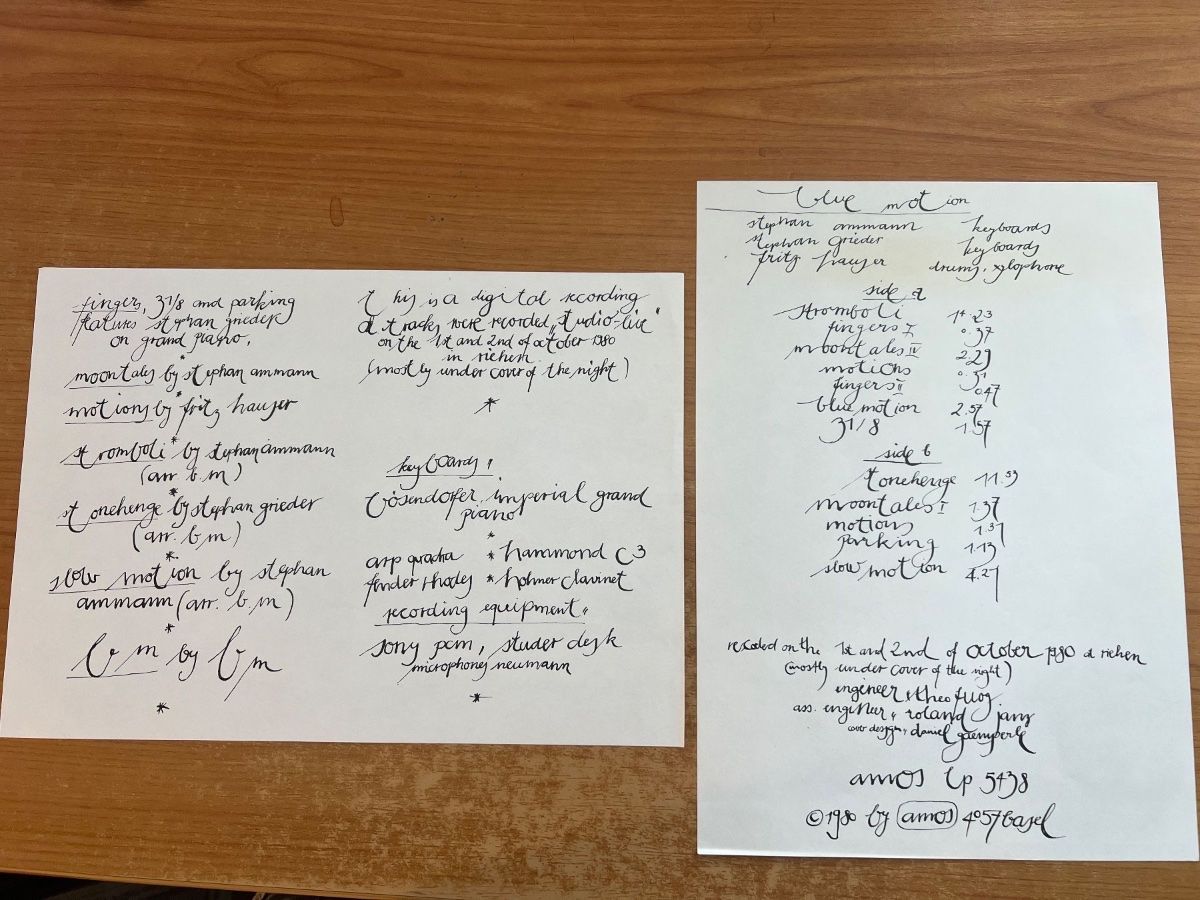 fingers, 31/8 and parking
features stephan grieder
on grand piano,
*
moontales by stephan ammann
*
motions by fritz hauser
*
stromboli by stephan ammann
(arr. b.m)
*
stonehenge by stephan grieder
(arr. b,m)
*
slow motion by stephan
ammann (arr. b.m)
*
b m by b m
*
this is a digital recording
all tracks were recorded "studio-live"
on the 1st and 2nd of october 1980
in riehen
(mostly under cover of the night)
*
keyboards:
bösendorfer imperial grand
piano
*
arp quadra * hammond C3
fender rhodes * hohner clavinet
recording equipment:
sony pcm, studer desk
microphones neumann
*
blue motion
stephan ammann keyboards
stephan grieder keyboards
fritz hauser drums, xylophone
side a
stromboli 14.23
fingers I 0.37
moontales IV 2.29
motions 0.51
fingers II 0.47
blue motion 2.57
31/8 1.57
side b
stonehenge 11.53
moontales I 1.37
motions 1.31
parking 1.13
slow motion 4.27
recorded on the 1st and 2nd of october 1980 at riehen
(mostly under cover of the night)
engineer: theo fuog
ass. engineer: roland
cover design: daniel gaemperle
amos lp 5438
©1980 by amos 4057 basel